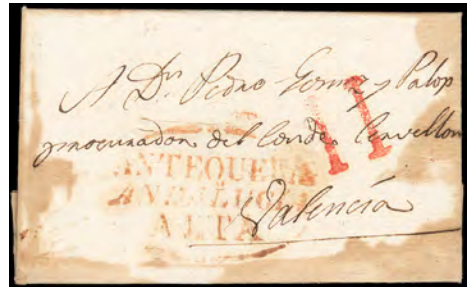 A Dn. Pedro Gomez y Palop
procurador del Conde Cervellon
11
ANTEQUERA
ANDALUCIA
ALTA
Valencia